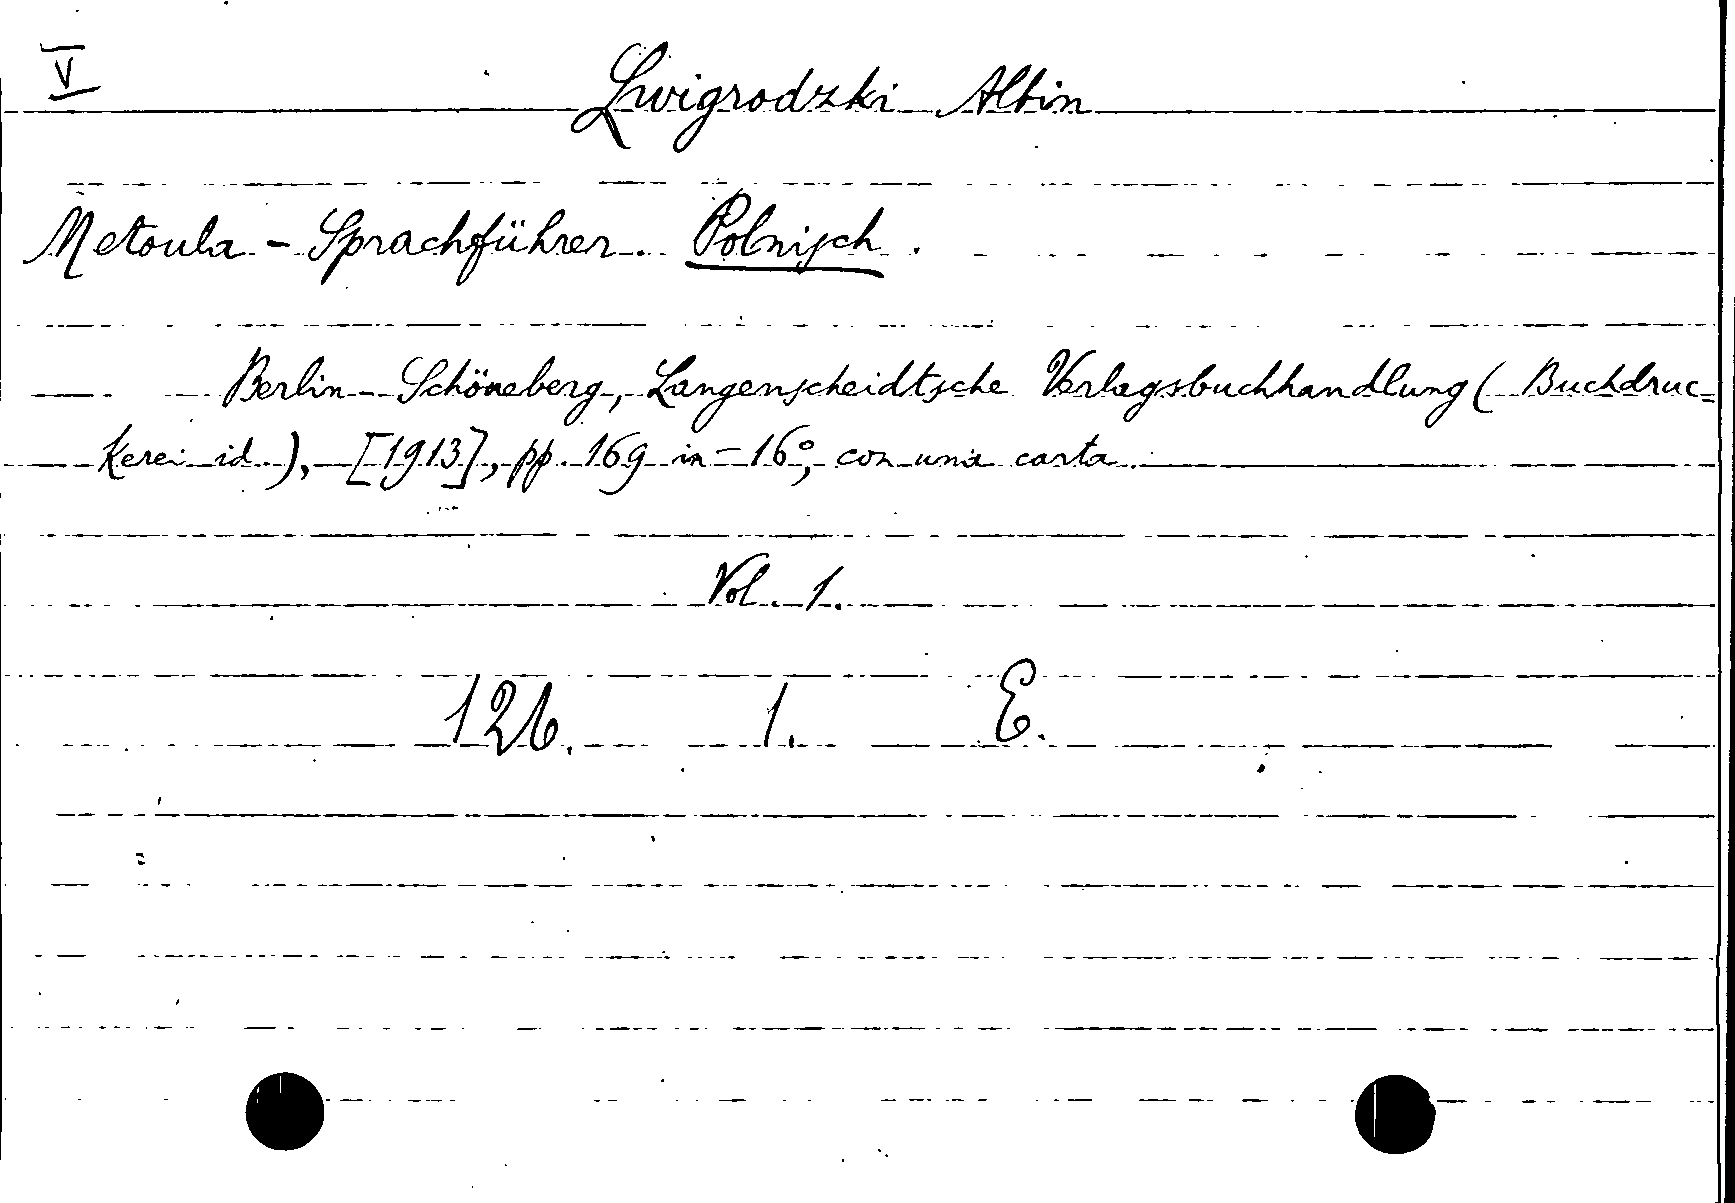 V
Zwigrodzki Albin
Metoula - Sprachführer. Polnisch.
Berlin - Schöneberg, Langenscheidtsche Verlagsbuchhandlung ( Buchdruc=
kerei id.), [1913], pp. 169 in-16°, con una carta.
Vol. 1.
126. 1. E.